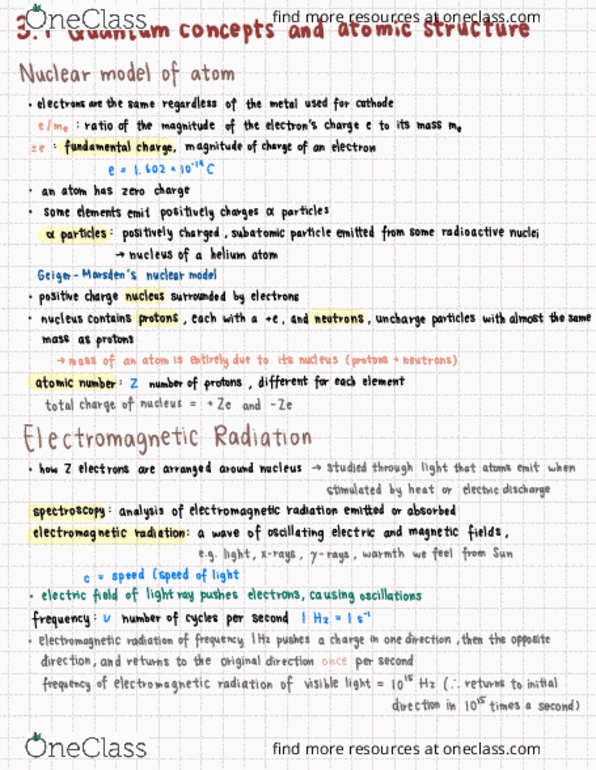 OneClass
find more resources at oneclass.com
3.1 Quantum concepts and atomic structure
Nuclear model of atom
· electrons are the same regardless of the metal used for cathode
e/mₑ : ratio of the magnitude of the electron's charge e to its mass mₑ
: fundamental charge, magnitude of charge of an electron
e = 1.602 × 10⁻¹⁹ C
· an atom has zero charge
· some elements emit positively charges α particles
α particles: positively charged, subatomic particle emitted from some radioactive nuclei
→ nucleus of a helium atom
Geiger-Marsden's nuclear model
· positive charge nucleus surrounded by electrons
· nucleus contains protons, each with a +e, and neutrons, uncharge particles with almost the same
mass as protons
→ mass of an atom is entirely due to its nucleus (protons + neutrons)
atomic number: Z number of protons, different for each element
total charge of nucleus = +Ze and -Ze
Electromagnetic Radiation
· how Z electrons are arranged around nucleus → studied through light that atoms emit when
stimulated by heat or electric discharge
spectroscopy: analysis of electromagnetic radiation emitted or absorbed
electromagnetic radiation: a wave of oscillating electric and magnetic fields,
e.g. light, x-rays, γ-rays, warmth we feel from Sun
c = speed (speed of light
· electric field of light ray pushes electrons, causing oscillations
frequency: ν number of cycles per second 1 Hz = 1 s⁻¹
· electromagnetic radiation of frequency 1Hz pushes a charge in one direction, then the opposite
direction, and returns to the original direction once per second
frequency of electromagnetic radiation of visible light = 10¹⁵ Hz (∴ returns to initial
direction in 10¹⁵ times a second)
OneClass
find more resources at oneclass.com